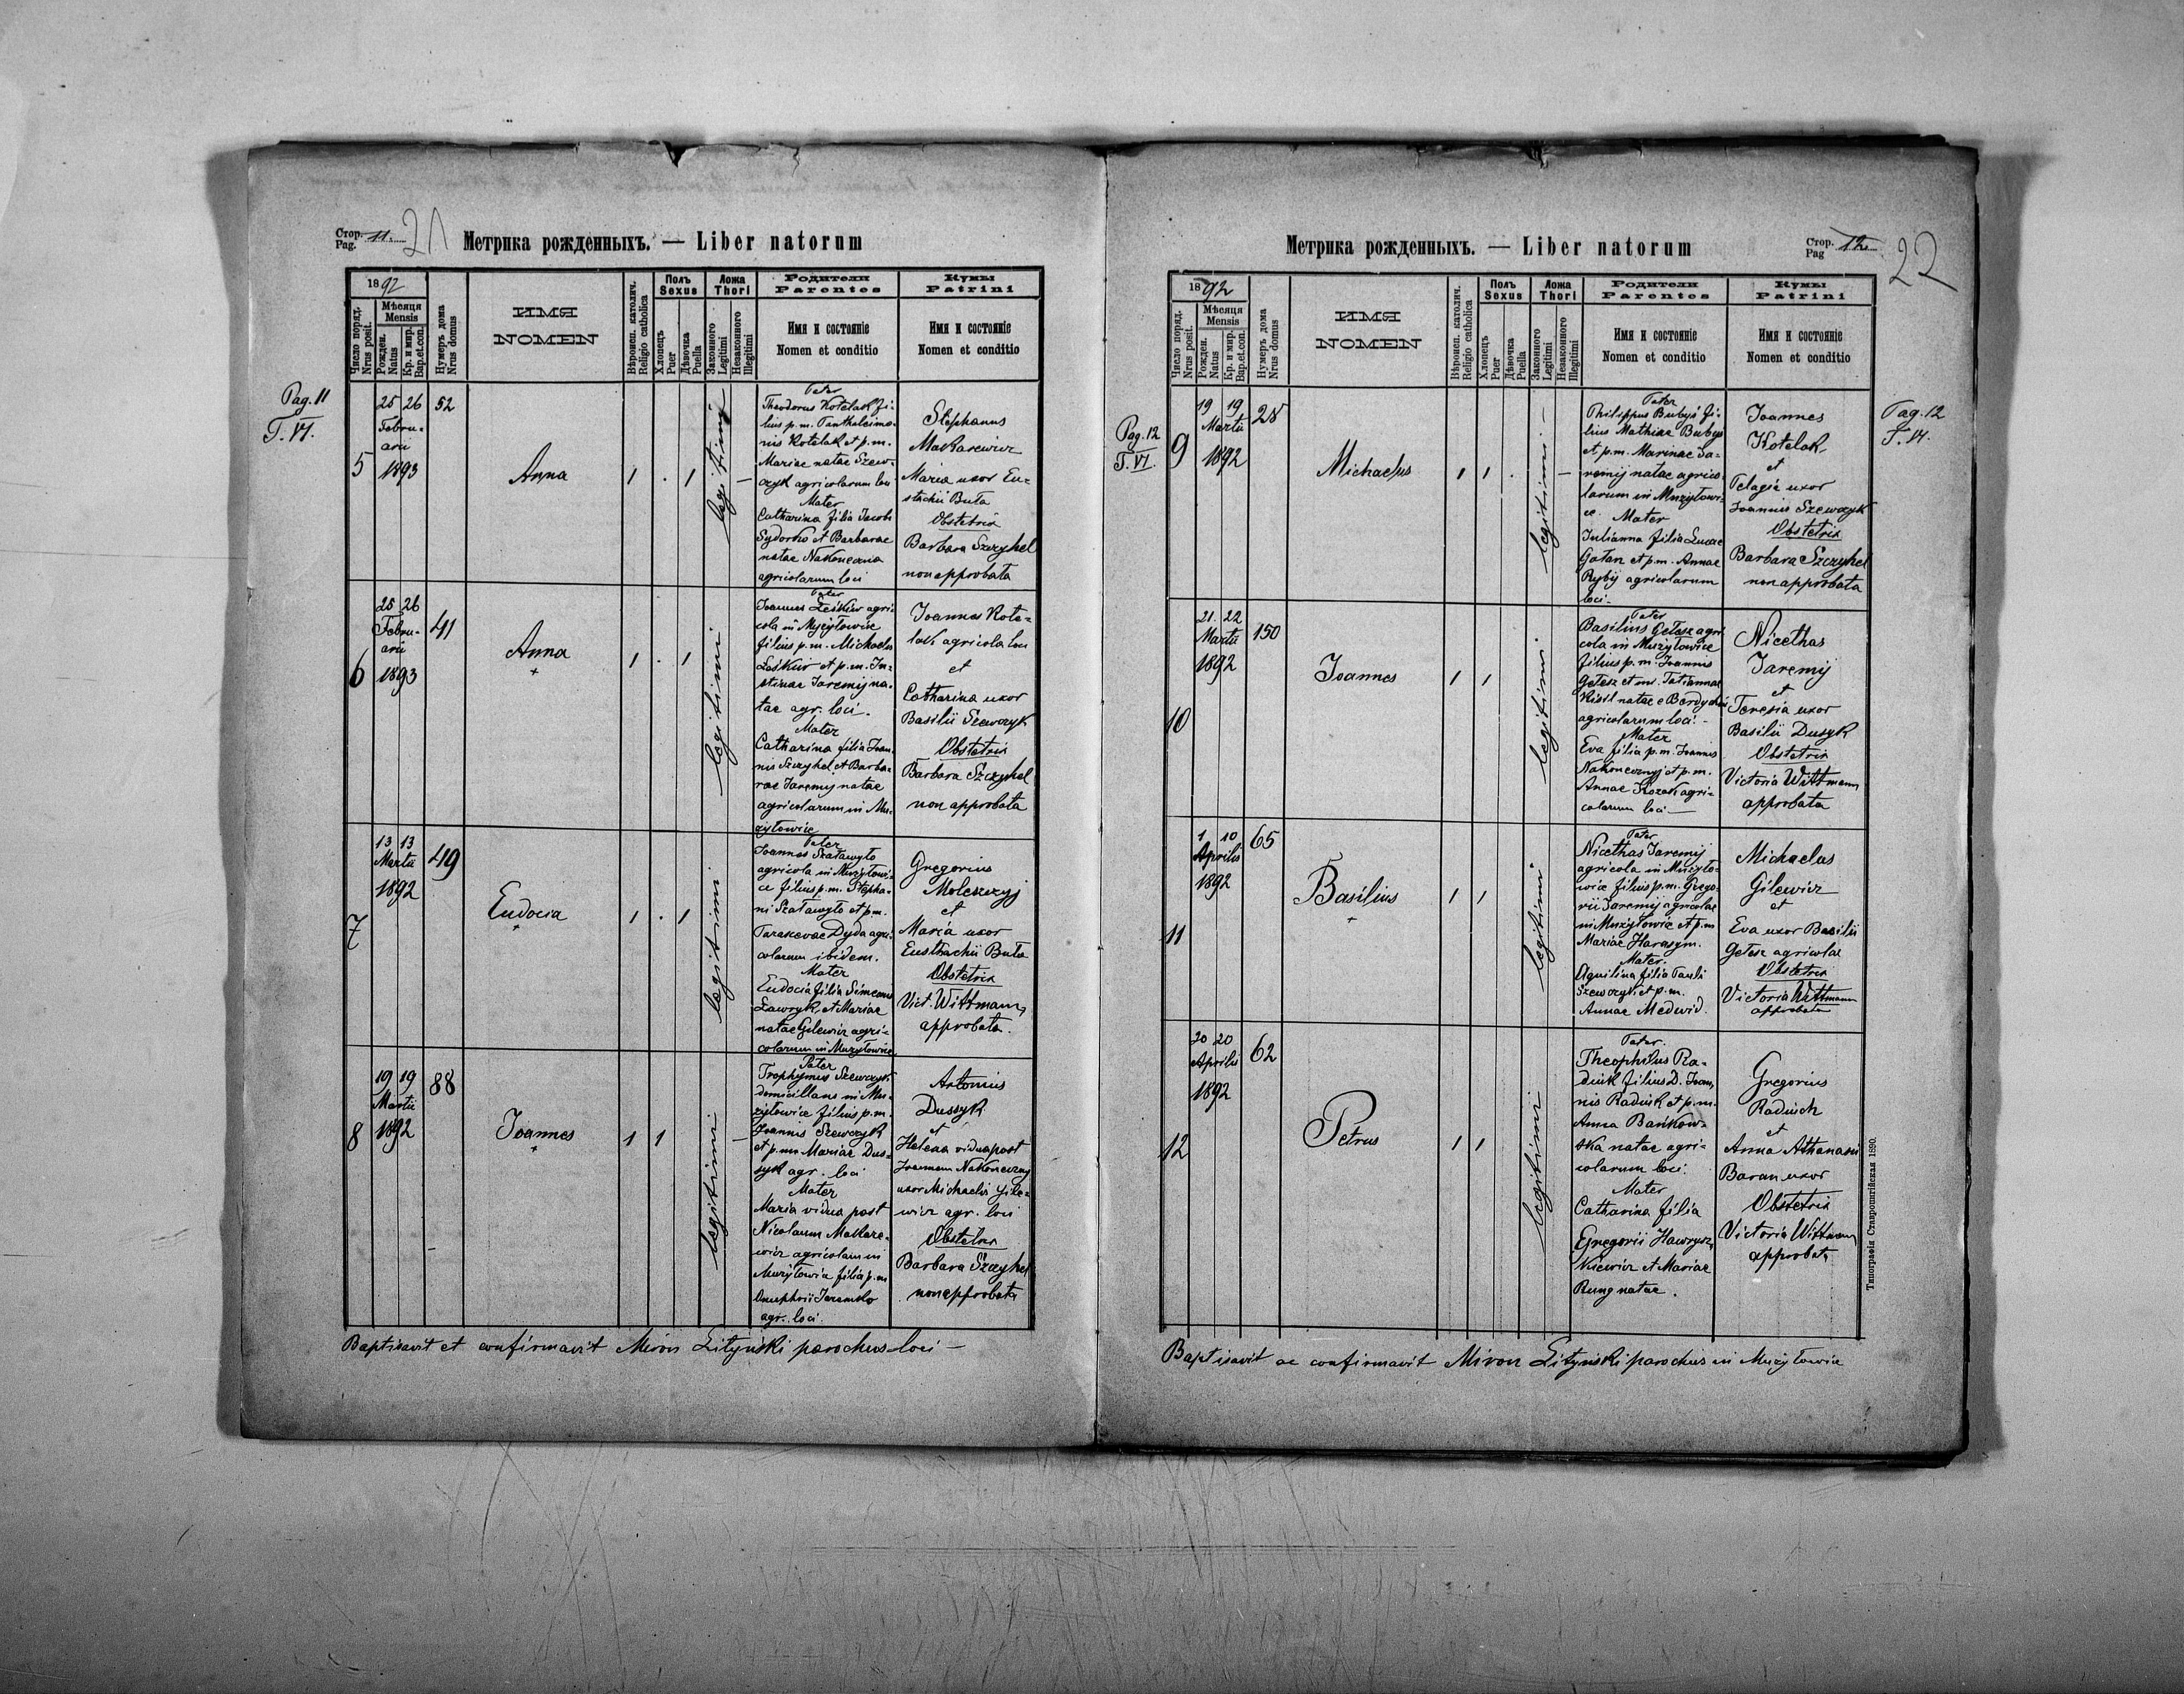 Стор. Pag. 11. 21
Метрика рожденныхъ. — Liber natorum
1892
Число поряд. Nrus posit.
Мѣсяця Mensis
Рожден. Natus
Кр. и мир. Bap. et con.
Нумеръ дома Nrus domus
ИМЯ
NOMEN
Вѣроисп. католич. Religio catholica
Полъ Sexus
Хлопецъ Puer
Дѣвочка Puella
Ложа Thori
Законного Legitimi
Незаконного Illegitimi
Родители
Parentes
Имя и состояніе
Nomen et conditio
Кумы
Patrini
Имя и состояніе
Nomen et conditio
Pag. 11
T. VI.
5
25 26
Febru-
arii
1893
52
Anna
1 . 1
legitimi
Pater
Theodorus Kotelak fi-
lius p. m. Pantheleimo-
nis Kotelak et p. m.
Mariae natae Szew-
czyk agricolarum loci
Mater
Catharina filia Jacobi
Sydorko et Barbarae
natae Nakoneczna
agricolarum loci
Stephanus
Makarewicz
Maria uxor Eu-
stachii Buta
Obstetrix
Barbara Szczyhel
non approbata
6
25 26
Febru-
arii
1893
41
Anna
+
1 . 1
legitimi
Pater
Joannes Leśkiw agri-
cola in Mużyłowice
filius p. m. Michaelis
Leśkiw et p. m. Ju-
stinae Jaremij na-
tae agr. loci.
Mater
Catharina filia Joan-
nis Szczyhel et Barba-
rae Jaremij natae
agricolarum in Mu-
żyłowice
Joannes Kote-
lak agricola loci
et
Catharina uxor
Basilii Szewczyk
Obstetrix
Barbara Szczyhel
non approbata
7
13 13
Martii
1892
49
Eudocia
+
1 . 1
legitimi
Pater
Joannes Szaławyło
agricola in Mużyłowi-
ce filius p. m. Stepha-
ni Szaławyło et p. m.
Parascevae Dyda agri-
colarum ibidem.
Mater
Eudocia filia Simeonis
Ławryk et Mariae
natae Gilewicz agri-
colarum in Mużyłowice
Gregorius
Moleszczyj
et
Maria uxor
Eusthachii Buta
Obstetrix
Vict. Wittmann
approbata.
8
19 19
Martii
1892
88
Joannes
+
1 1
legitimi
Pater
Trophymus Szewczyk
domicillans in Mu-
żyłowice filius p. m.
Joannis Szewczyk
et p. m. Mariae Dus-
syk agr. loci
Mater
Maria vidua post
Nicolaum Makare-
wicz agricolam in
Mużyłowice filia p. m.
Onuphrii Jaremko
agr. loci
Antonius
Dussyk
et
Helena vidua post
Joannem Nakoneczny
uxor Michaelis Gile-
wicz agr. loci
Obstetrix
Barbara Szczyhel
non approbata
Baptisavit et confirmavit Miron Lityński parochus loci —
Метрика рожденныхъ. — Liber natorum
Стор. Pag 12. 22
1892
Число поряд. Nrus posit.
Мѣсяця Mensis
Рожден. Natus
Кр. и мир. Bap. et con.
Нумеръ дома Nrus domus
ИМЯ
NOMEN
Вѣроисп. католич. Religio catholica
Полъ Sexus
Хлопецъ Puer
Дѣвочка Puella
Ложа Thori
Законного Legitimi
Незаконного Illegitimi
Родители
Parentes
Имя и состояніе
Nomen et conditio
Кумы
Patrini
Имя и состояніе
Nomen et conditio
Pag. 12
T. VI.
Pag. 12
T. VI.
9
19 19
Martii
1892
Michaelus
1 1 .
legitimi
Pater
Philippus Bubys fi-
lius Mathiae Bubys
et p. m. Marinae Ja-
remij natae agrico-
larum in Mużyłowi-
ce. Mater
Julianna filia Lucae
Gałan et p. m. Annae
Rybij agricolarum
loci.
Joannes
Kotelak
et
Pelagia uxor
Joannis Szewczyk
Obstetrix
Barbara Szczyhel
non approbata
10
21. 22
Martii
1892
150
Joannes
1 1
legitimi
Pater
Basilius Getesz agri-
cola in Mużyłowice
filius p. m. Joannis
Getesz et Tatiannae
natae e
agricolarum loci.
Mater
Eva filia p. m. Joannis
Nakonecznyj et p. m.
Annae Kozak agri-
colarum loci —
Nicethas
Jaremij
et
Teresia uxor
Basilii Dusyk
Obstetrix
Victoria Wittmann
approbata
11
1 10
Aprilis
1892
65
Basilius
+
1 1
legitimi
Pater
Nicethas Jaremij
agricola in Mużyło-
wice filius p. m. Grego-
rii Jaremij agricolae
in Mużyłowice et p. m.
Mariae Harasym.
Mater.
Aquilina filia Pauli
Szewczyk et p. m.
Annae Medwid.
Michaelus
Gilewicz
et
Eva uxor Basilii
Getesz agricolae
Obstetrix
Victoria Wittmann
approbata
12
20 20
Aprilis
1892
62
Petrus
1 1
legitimi
Pater.
Theophilus Ra-
duik filius D. Joan-
nis Raduik et p. m.
Anna Bańkow-
ska natae agri-
colarum loci.
Mater
Catharina filia
Gregorii Hawrysz-
kiewicz et Mariae
Rung natae.
Gregorius
Raduich
et
Anna Athanasii
Baran uxor
Obstetrix
Victoria Wittmann
approbata
Baptisavit ac confirmavit Miron Lityński parochus in Mużyłowice
Типографія Ставропигійская 1890.